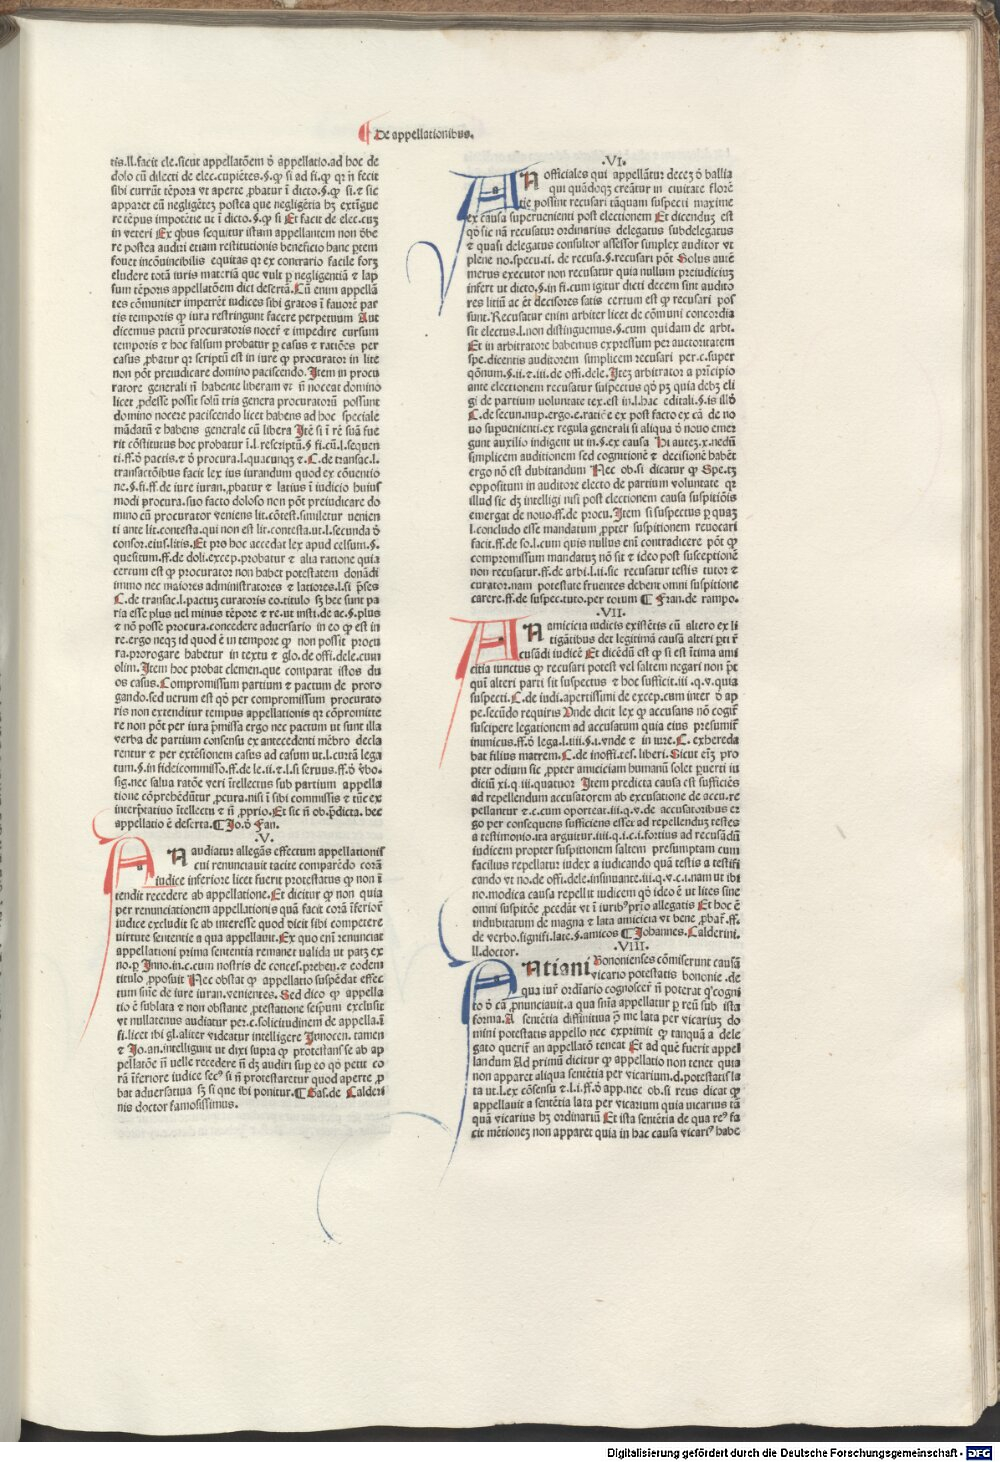 ¶ De appellationibus.
tis.ll.facit cle.sicut appellatōem ⁊̄ appellatio.ad hoc de
dolo cū dilecti de elec.cupiētes.§.ꝙ si ad fi.ꝙ qꝛ in fecit
sibi currūt tēpora vt aperte ꝓbatur ī dicto.§.ꝙ si.⁊ sic
apparet eū negligētez postea que negligētia hꝫ extīgue
re tēpus impotētie ut ī dicto.§.ꝙ si Et facit de elec.cuꝫ
in veteri Ex qbus sequitur istam appellantem non dēbe
re postea audiri etiam restitutionis beneficio hanc ꝑtem
fouet incōuincibilis equitas qꝛ ex contrario facile forꝫ
eludere totā iuris materiā que vult ꝑ negligentiā ⁊ lap
sum tēporis appellatōem dici desertā.Cū enim appellā
tes cōmuniter impetrēt iudices sibi gratos ī fauorē par
tis temporis ꝙ iura restringunt facere perpetuum Aut
dicemus pactū procuratoris nocerē ⁊ impedire cursum
temporis ⁊ hoc falsum probatur ꝑ casus ⁊ ratiōes per
casus ꝓbatur qꝛ scriptū est in iure ꝙ procurator in lite
non pōt preiudicare domino paciscendo.Item in procu
ratore generali ñ habente liberam vt ñ noceat domino
licet ꝓdesse possit solū tria genera procuratorū possunt
domino nocere paciscendo licet habens ad hoc speciale
mādatū ⁊ habens generale cū libera Itē si ī rē suā fue
rit cōstitutus hoc probatur ī.l.rescriptū.§ fi cū.l.sequen
ti.ff.ō pactis.⁊ ō procura.l.quacunqꝫ ⁊.C.de transac.l.
transactōibus facit lex ius iurandum quod ex cōuentio
ne.§.fi.ff.de iure iuran.ꝓbatur ⁊ latius ī iudicio huius
modi procura.suo facto doloso non pōt preiudicare do
mino cū procurator veniens lit.cōtest.similetur uenien
ti ante lit.contesta.qui non est lit.contesta.ut.l.secunda ō
consor.eius.litis.Et pro hoc accedat lex apud celsum.§.
quesitum.ff.de doli.excep.probatur ⁊ alia ratione quia
certum est ꝙ procurator non habet potestatem donādi
immo nec maiores administratores ⁊ latiores.l.si ꝑses
C.de transac.l.pactuꝫ curatoris eo.titulo sꝫ hec sunt pa
ria esse plus uel minus tēpore ⁊ re.ut insti.de ac.§.plus
⁊ nō posse procura.concedere aduersario in eo ꝙ est in
re.ergo neqꝫ id quod ē in tempore ꝙ non possit procu
ra.prorogare habetur in textu ⁊ glo.de offi.dele.cum
olim.Item hoc probat clemen.que comparat istos du
os casus.Compromissum partium ⁊ pactum de proro
gando.sed uerum est qō per compromissum procurato
ris non extenditur tempus appellationis qꝛ cōpromitte
re non pōt per iura ꝑmissa ergo nec pactum ut sunt illa
verba de partium consensu ex antecedenti mēbro decla
rentur ⁊ per extēsionem casus ad casum ut.l.curtā lega
tum.§.in fideicommisso.ff.de le.ii.⁊.l.si seruus.ff.ō v̄bo.
sig.nec salua ratōe veri ītellectus sub partium appella
tione cōprehēdūtur ꝓcura.nisi ī sibi commissis ⁊ tūc ex
interp̄tatiuo ītellectu ⁊ ñ ꝓprio.Et sic ñ ob.ꝓdicta. hec
appellatio ē deserta.¶ Jo.ō Fan.
.V.
AN audiatur allegās effectum appellationis
cui renunciauit tacite comparēdo corā
iudice inferiore licet fuerit protestatus ꝙ non ī
tendit recedere ab appellatione.Et dicitur ꝙ non quia
per renunciationem appellationis quā facit corā īferiorē
iudice excludit se ab interesse quod dicit sibi competere
uirtute sententie a qua appellauit.Ex quo enī renunciat
appellationi prima sententia remanet ualida ut patꝫ ex
no.ꝑ Inno.in.c.cum nostris de concess.preben.⁊ eodem
titulo ꝓposuit Nec obstat ꝙ appellatio suspēdat effec
tum sniē de iure iuran.venientes. Sed dico ꝙ appella
tio ē sublata ⁊ non obstante ꝓtestatione seipsum exclusit
vt nullatenus audiatur per.c.solicitudinem de appella.ī
fi.licet ibi gl.aliter videatur intelligere Innocen. tamen
⁊ Jo.an.intelligunt ut dixi supra ꝙ protestans se ab ap
pellatōe ñ uelle recedere ñ dꝫ audiri sup eo qō petit co
rā īferiore iudice secꝰ si ñ protestaretur quod aperte ꝓ
bat aduersatiua sꝫ si que ibi ponitur.¶ Gas.de Calderi
nis doctor famosissimus.
.VI.
AN officiales qui appellātur deceꝫ ō ballia
qui quādoqꝫ creātur in ciuitate florē
tie possint recusari tāquam suspecti maxime
ex causa superuenienti post electionem Et dicenduꝫ est
qō sic nā recusatur ordinarius delegatus subdelegatus
⁊ quasi delegatus consultor assessor simplex auditor vt
plene no.specu.ti. de recusa.§.recusari pōt Solus autē
merus executor non recusatur quia nullum preiudiciuꝫ
infert ut dicto.§.in fi.cum igitur dicti decem sint audito
res litiū ac ēt decisores satis certum est ꝙ recusari pos
sunt.Recusatur enim arbiter licet de cōmuni concordia
sit electus.l.non distinguemus.§.cum quidam de arbi.
Et in arbitratore habemus expressum per auctoritatem
spe.dicentis auditorem simplicem recusari per.c.super
qōnum.§.ii.⁊.iii.de offi.dele.Iteꝫ arbitrator a prīcipio
ante electionem recusatur suspectus qō pꝫ quia debꝫ eli
gi de partium voluntate tex.est in.l.hac editali.§.is illō
C.de secun.nup.ergo.e.ratiōe ex post facto ex cā de no
uo supuenienti.ex regula generali si aliqua ō nouo emer
gunt auxilio indigent ut in.§.ex causa Hi auteꝫ.x.nedū
simplicem auditionem sed cognitionē ⁊ decisionē habēt
ergo nō est dubitandum Nec ob.si dicatur ꝙ Spe.tꝫ
oppositum in auditore electo de partium voluntate qꝛ
illud sic dꝫ intelligi nisi post electionem causa suspitiōis
emergat de nouo.ff.de procu.Item si suspectus ꝑ quaꝫ
l.concludo esse mandatum ꝓpter suspitionem reuocari
facit.ff.de so.l.cum quis nullus enī contradicere pōt ꝙ
compromissum mandatuꝫ nō sit ⁊ ideo post susceptionē
non recusatur.ff.de arbi.l.ii.sic recusatur testis tutor ⁊
curator.nam potestate fruentes debent omni suspitione
carere.ff.de suspec.tuto.per totum ¶ Fran.de rampo.
.VII.
AN amicicia iudicis existētis cū altero ex li
tigātibus det legitimā causā alteri ꝑti r̄
cusādi iudicē Et dicēdū est ꝙ si est ītima ami
citia iunctus ꝙ recusari potest vel saltem negari non p̄t
quī alteri parti sit suspectus ⁊ hoc sufficit.iii .q.v.quia
suspecti.C.de iudi.apertissimi de excep.cum inter ō ap
pe.secūdo requiris Unde dicit lex ꝙ accusans nō cogit̄
suscipere legationem ad accusatum quia eius presumit̄
inimicus.ff.ō lega.l.iiii.§.i.vnde ⁊ in iure.C. exhereda
bat filius matrem.C.de inoffi.tes.liberi.Sicut enīꝫ pro
pter odium sic ꝓpter amiciciam humanū solet ꝑuerti iu
diciū xi.q.iii.quatuor Item predicta causa est sufficiēs
ad repellendum accusatorem ab excusatione de accu.re
pellantur ⁊.c.cum oporteat.iii.q.v.de accusatoribus er
go per consequens sufficiens esset ad repellenduꝫ testes
a testimonio.ita arguitur.iii.q.i.c.i.fortius ad recusādū
iudicem propter suspitionem saltem presumptam cum
facilius repellatur iudex a iudicando quā testis a testifi
cando vt no.de offi.dele.insinuante.iii.q.v.c.i.nam ut ibi
no.modica causa repellit iudicem qō ideo ē ut lites sine
omni suspitōe ꝓcedāt vt ī iuribꝰ prio allegatis Et hoc ē
indubitatum de magna ⁊ lata amicicia vt bene ꝓbat̄.ff.
de verbo.signifi.late.§.amicos ¶ Johannes.Calderini.
ll.doctor.
.VIII.
ANtiani Bononienses cōmiserunt causā
vicario potestatis bononie .de
qua iur̄ ordīario cognoscer̄ ñ poterat qꝰ cogni
to ō cā ꝓnunciauit.a qua snīa appellatur ꝑ reū sub ista
forma.A sentētia diffinitiua ꝙ me lata per vicariuꝫ do
mini potestatis appello nec exprimit ꝙ tanquā a dele
gato querit̄ an appellatō teneat Et ad quē fuerit appel
landum Ad primū dicitur ꝙ appellatio non tenet quia
non apparet aliqua sentētia per vicarium.d.potestatis la
ta ut.l.ex cōsensu ⁊.l.i.ff.ō app.nec ob.si reus dicat ꝙ
appellauit a sentētia lata per vicarium quia vicarius tā
quā vicarius hꝫ ordinariū Et ista sentētia de qua reꝰ fa
cit mētioneꝫ non apparet quia in hac causa vicariꝰ habe
Digitalisierung gefördert durch die Deutsche Forschungsgemeinschaft - DFG